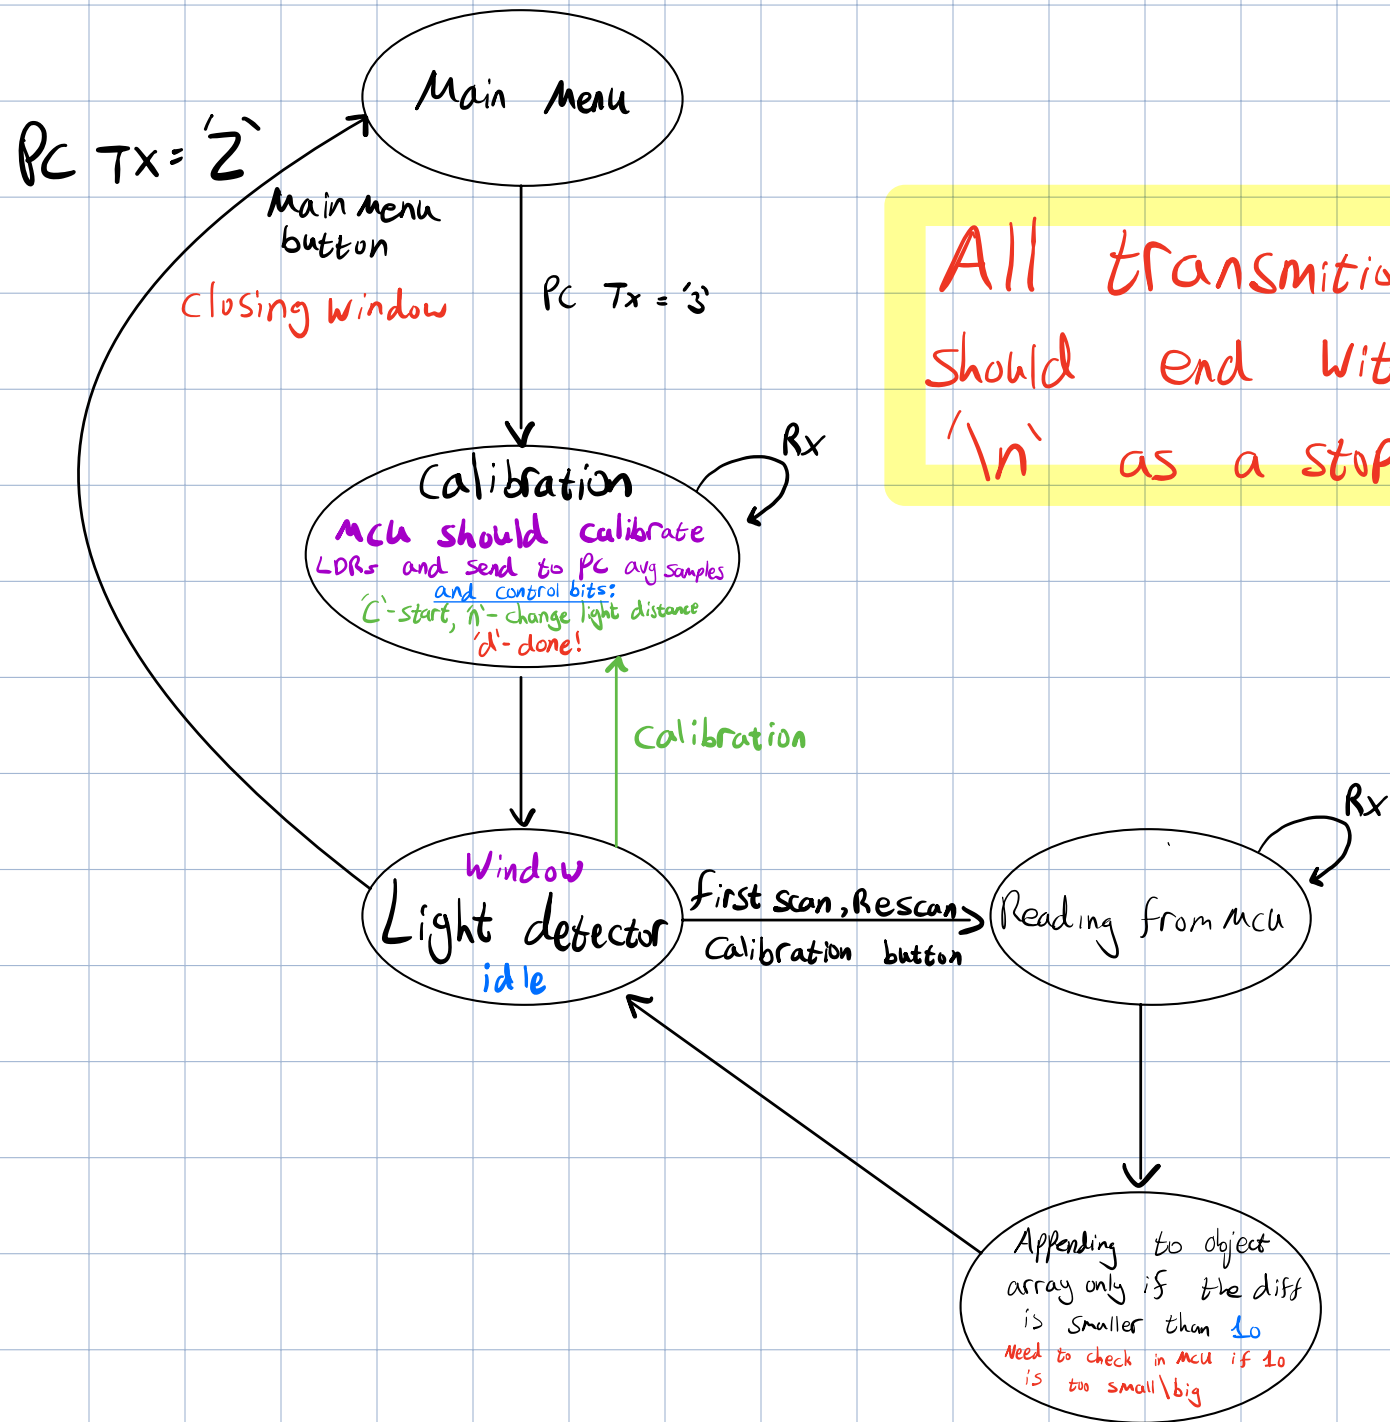 Main Menu
PC Tx = '2'
Main Menu
button
Closing window
PC Tx = '3'
All transmitio
should end wit
'\n' as a stop
Rx
Calibration
MCU should calibrate
LDRs and send to PC avg samples
and control bits:
'C'-start, 'n'- change light distance
'd'- done!
Calibration
Window
Light detector
idle
first scan, Rescan
Calibration button
Reading from MCU
Rx
Appending to object
array only if the diff
is smaller than 10
Need to check in MCU if 10
is too small\big